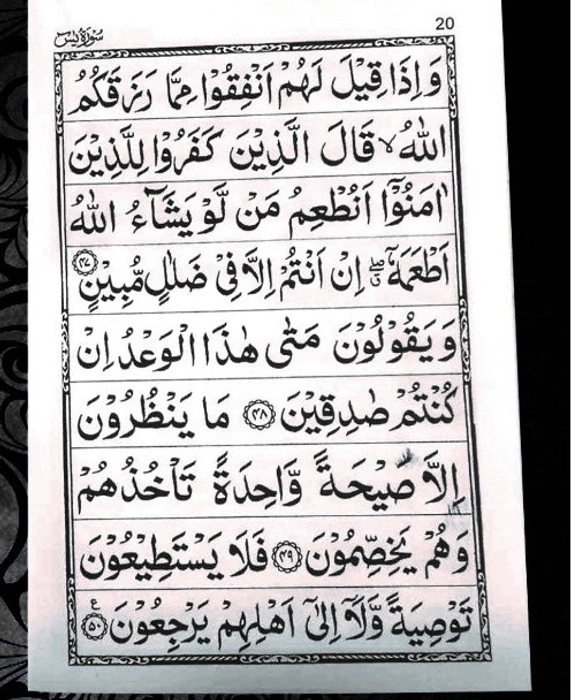 20
سورة يس
وَاِذَا قِيْلَ لَهُمْ اَنْفِقُوْا مِمَّا رَزَقَكُمُ
اللّٰهُ ۙ قَالَ الَّذِيْنَ كَفَرُوْا لِلَّذِيْنَ
اٰمَنُوْۤا اَنُطْعِمُ مَنْ لَّوْ يَشَآءُ اللّٰهُ
اَطْعَمَهٗۤ ۖ اِنْ اَنْتُمْ اِلَّا فِيْ ضَلٰلٍ مُّبِيْنٍ ۴۷
وَيَقُوْلُوْنَ مَتٰى هٰذَا الْوَعْدُ اِنْ
كُنْتُمْ صٰدِقِيْنَ ۴۸ مَا يَنْظُرُوْنَ
اِلَّا صَيْحَةً وَّاحِدَةً تَاْخُذُهُمْ
وَهُمْ يَخِصِّمُوْنَ ۴۹ فَلَا يَسْتَطِيْعُوْنَ
تَوْصِيَةً وَّلَاۤ اِلٰۤى اَهْلِهِمْ يَرْجِعُوْنَ ۵۰ ع